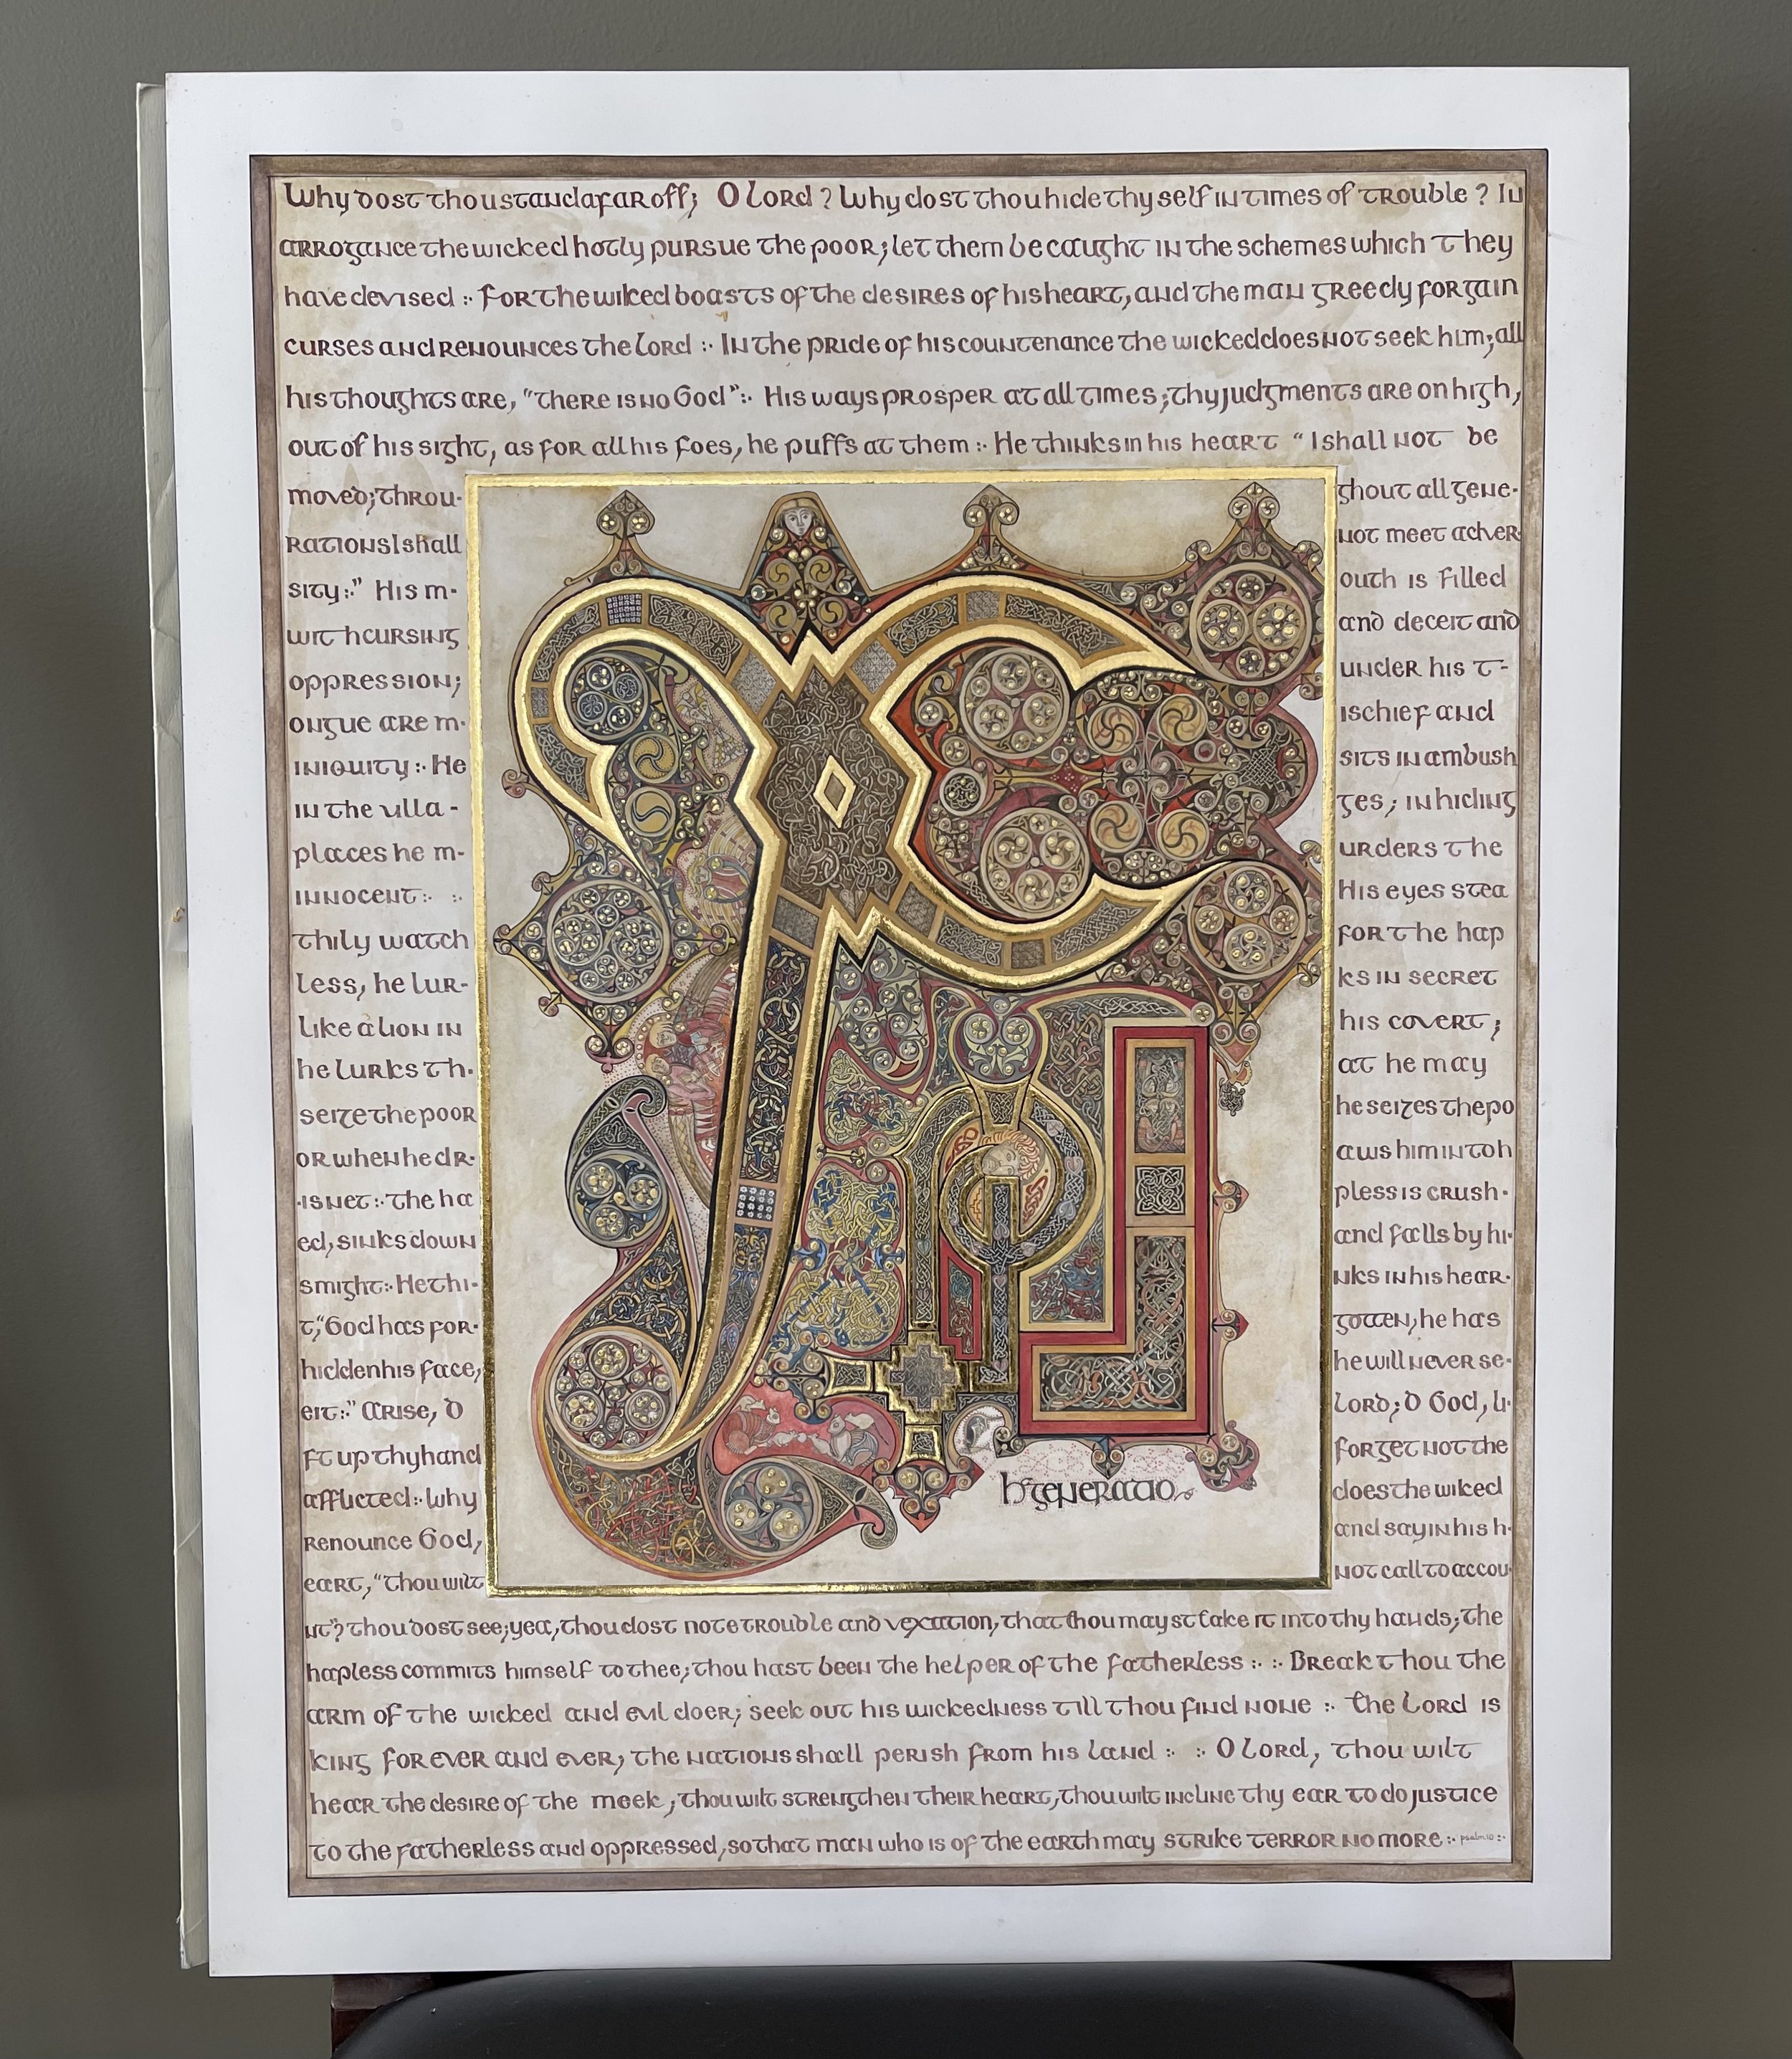 Why dost thou stand afar off; O Lord? Why dost thou hide thy self in times of trouble? In
arrogance the wicked hotly pursue the poor; let them be caught in the schemes which they
have devised :· For the wiked boasts of the desires of his heart, and the man greedy for gain
curses and renounces the Lord :· In the pride of his countenance the wicked does not seek him; all
his thoughts are, "there is no God":· His ways prosper at all times; thy judgments are on high,
out of his sight, as for all his foes, he puffs at them :· He thinks in his heart "I shall not be
moved; throu-
ghout all gene-
rations I shall
not meet adver
sity:·" His m-
outh is filled
with cursing
and deceit and
oppression;
under his t-
ongue are m-
ischief and
iniquity :· He
sits in ambush
in the villa-
ges; in hiding
places he m-
urders the
innocent :· :·
His eyes stea
thily watch
for the hap
less, he lur-
ks in secret
like a lion in
his covert;
he lurks th-
at he may
seize the poor
he seizes the po
or when he dr-
aws him into h
-is net :· the ha
pless is crush-
ed, sinks down
and falls by hi-
s might :· He thi-
nks in his hear-
t, "God has for-
gotten, he has
hidden his face,
he will never se-
e it:·" Arise, O
Lord; O God, li-
ft up thy hand
forget not the
afflicted :· Why
does the wiked
renounce God,
and say in his h-
eart, "thou wilt
not call to accou-
nt"? thou dost see; yea, thou dost note trouble and vexation, that thou mayst take it into thy hands; the
hapless commits himself to thee; thou hast been the helper of the fatherless :· :· Break thou the
arm of the wicked and evil doer; seek out his wickedness till thou find none :· the Lord is
king for ever and ever; the nations shall perish from his land :· :· O Lord, thou wilt
hear the desire of the meek; thou wilt strengthen their heart, thou wilt incline thy ear to do justice
to the fatherless and oppressed, so that man who is of the earth may strike terror no more :· psalm 10 :·
h generatio